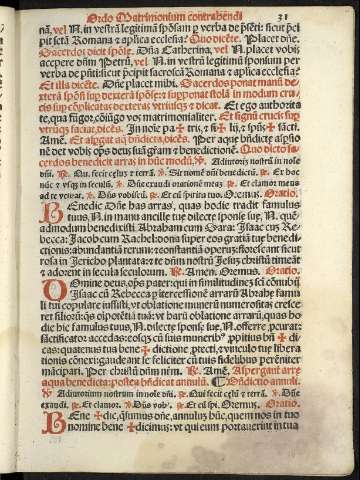 Ordo Matrimonium contrahendi
31
nā, vel N. in vestrā legitimā spōsam p verba de pūti: sicut pci
pit sctā Romana & aplica ecclesia? Quo dicēte. Placet dñe.
Sacerdos dicit spōse. Dña Catherina, vel N. placet vobis
accipere dñm Petrū, vel N. in vestrū legitimū sponsum per
verba de pūti: sicut pcipit sacrosctā Romana & aplica ecclesia?
Et illa dicēte. Dñe placet mihi. Sacerdos ponat manū de-
Et ego authorita
te, qua fūgor, cōiūgo vos matrimonialiter. Et signā crucis sup
utrūqs faciat, dicēs. In noīe pa✠tris, & fi✠lij, & spūs✠sācti.
Amē. Et aspgat aq̄ bñdicta, dicēs.
ne det vobis ōps deus suā grām & benedictionē. Quo dicto sa-
cerdos benedicit arras in hūc modū. ℣. Adiutoriū nostrū in noīe
dñi. ℟. Qui fecit celū & terrā. ℣. Sit nomē dñi benedictū. ℟. Ex hoc
nūc & vsqs in seculū. ℣. Dñe exaudi orationē meā. ℟. Et clamor meus
ad te veniat. ℣. Dñs vobiscū. ℟. Et cū spiritu tuo. Oremus. Oratio.
Benedic Dñe has arras, quas hodie tradit famulus
tuus, N. in manu ancille tue dilecte sponse sue, N. quē-
admodum benedixisti Abraham cum Sara: Isaac cum Re-
becca: Jacob cum Rachel: dona super eos gratiā tue benedi-
ctionis: abundantiā rerum: & constantiā operū: florescant sicut
rosa in Jericho plantata: & te dñm nostrū Jesum christū timeāt
& adorent in secula seculorum. ℟. Amen. Oremus. Oratio.
Domine deus ōps pater: qui in similitudinē scī cōnubij
Isaac cū Rebecca p̄ intercessionē arrarū Abrahe famu
li tui copulare iussisti, vt oblatione munerū numerositas cresce
ret filiorū: q̄s oīpotētiā tuā: vt harū oblatione arrarū, quas ho
die hic famulus tuus, N. dilecte sponse sue, N. offerre pcurat:
sāctificator accedas: eosqs cū suis muneribꝰ ppitius bñ✠di
cas: quatenus tua bene✠dictione ptecti, & vinculo tue libera
tionis cōnexi: gaudeant se feliciter cū tuis fidelibus perēniter
mācipari. Per christū dñm nrm. ℟. Amē. Aspergant arre
aqua benedicta: postea bñdicat annulū. ¶ Bñdictio annuli.
℣. Adiutorium nostrum in noīe dñi. ℟. Qui fecit celū & terrā. ℣. Dñe
exaudi. ℟. Et clamor. ℣. Dñs vob. ℟. Et cū spi. Oremus. Oratio.
Bene✠dic, q̄sumus dñe, annulos hūc, quem nos in tuo
nomine bene✠dicimus: vt qui eum portauerint in tua